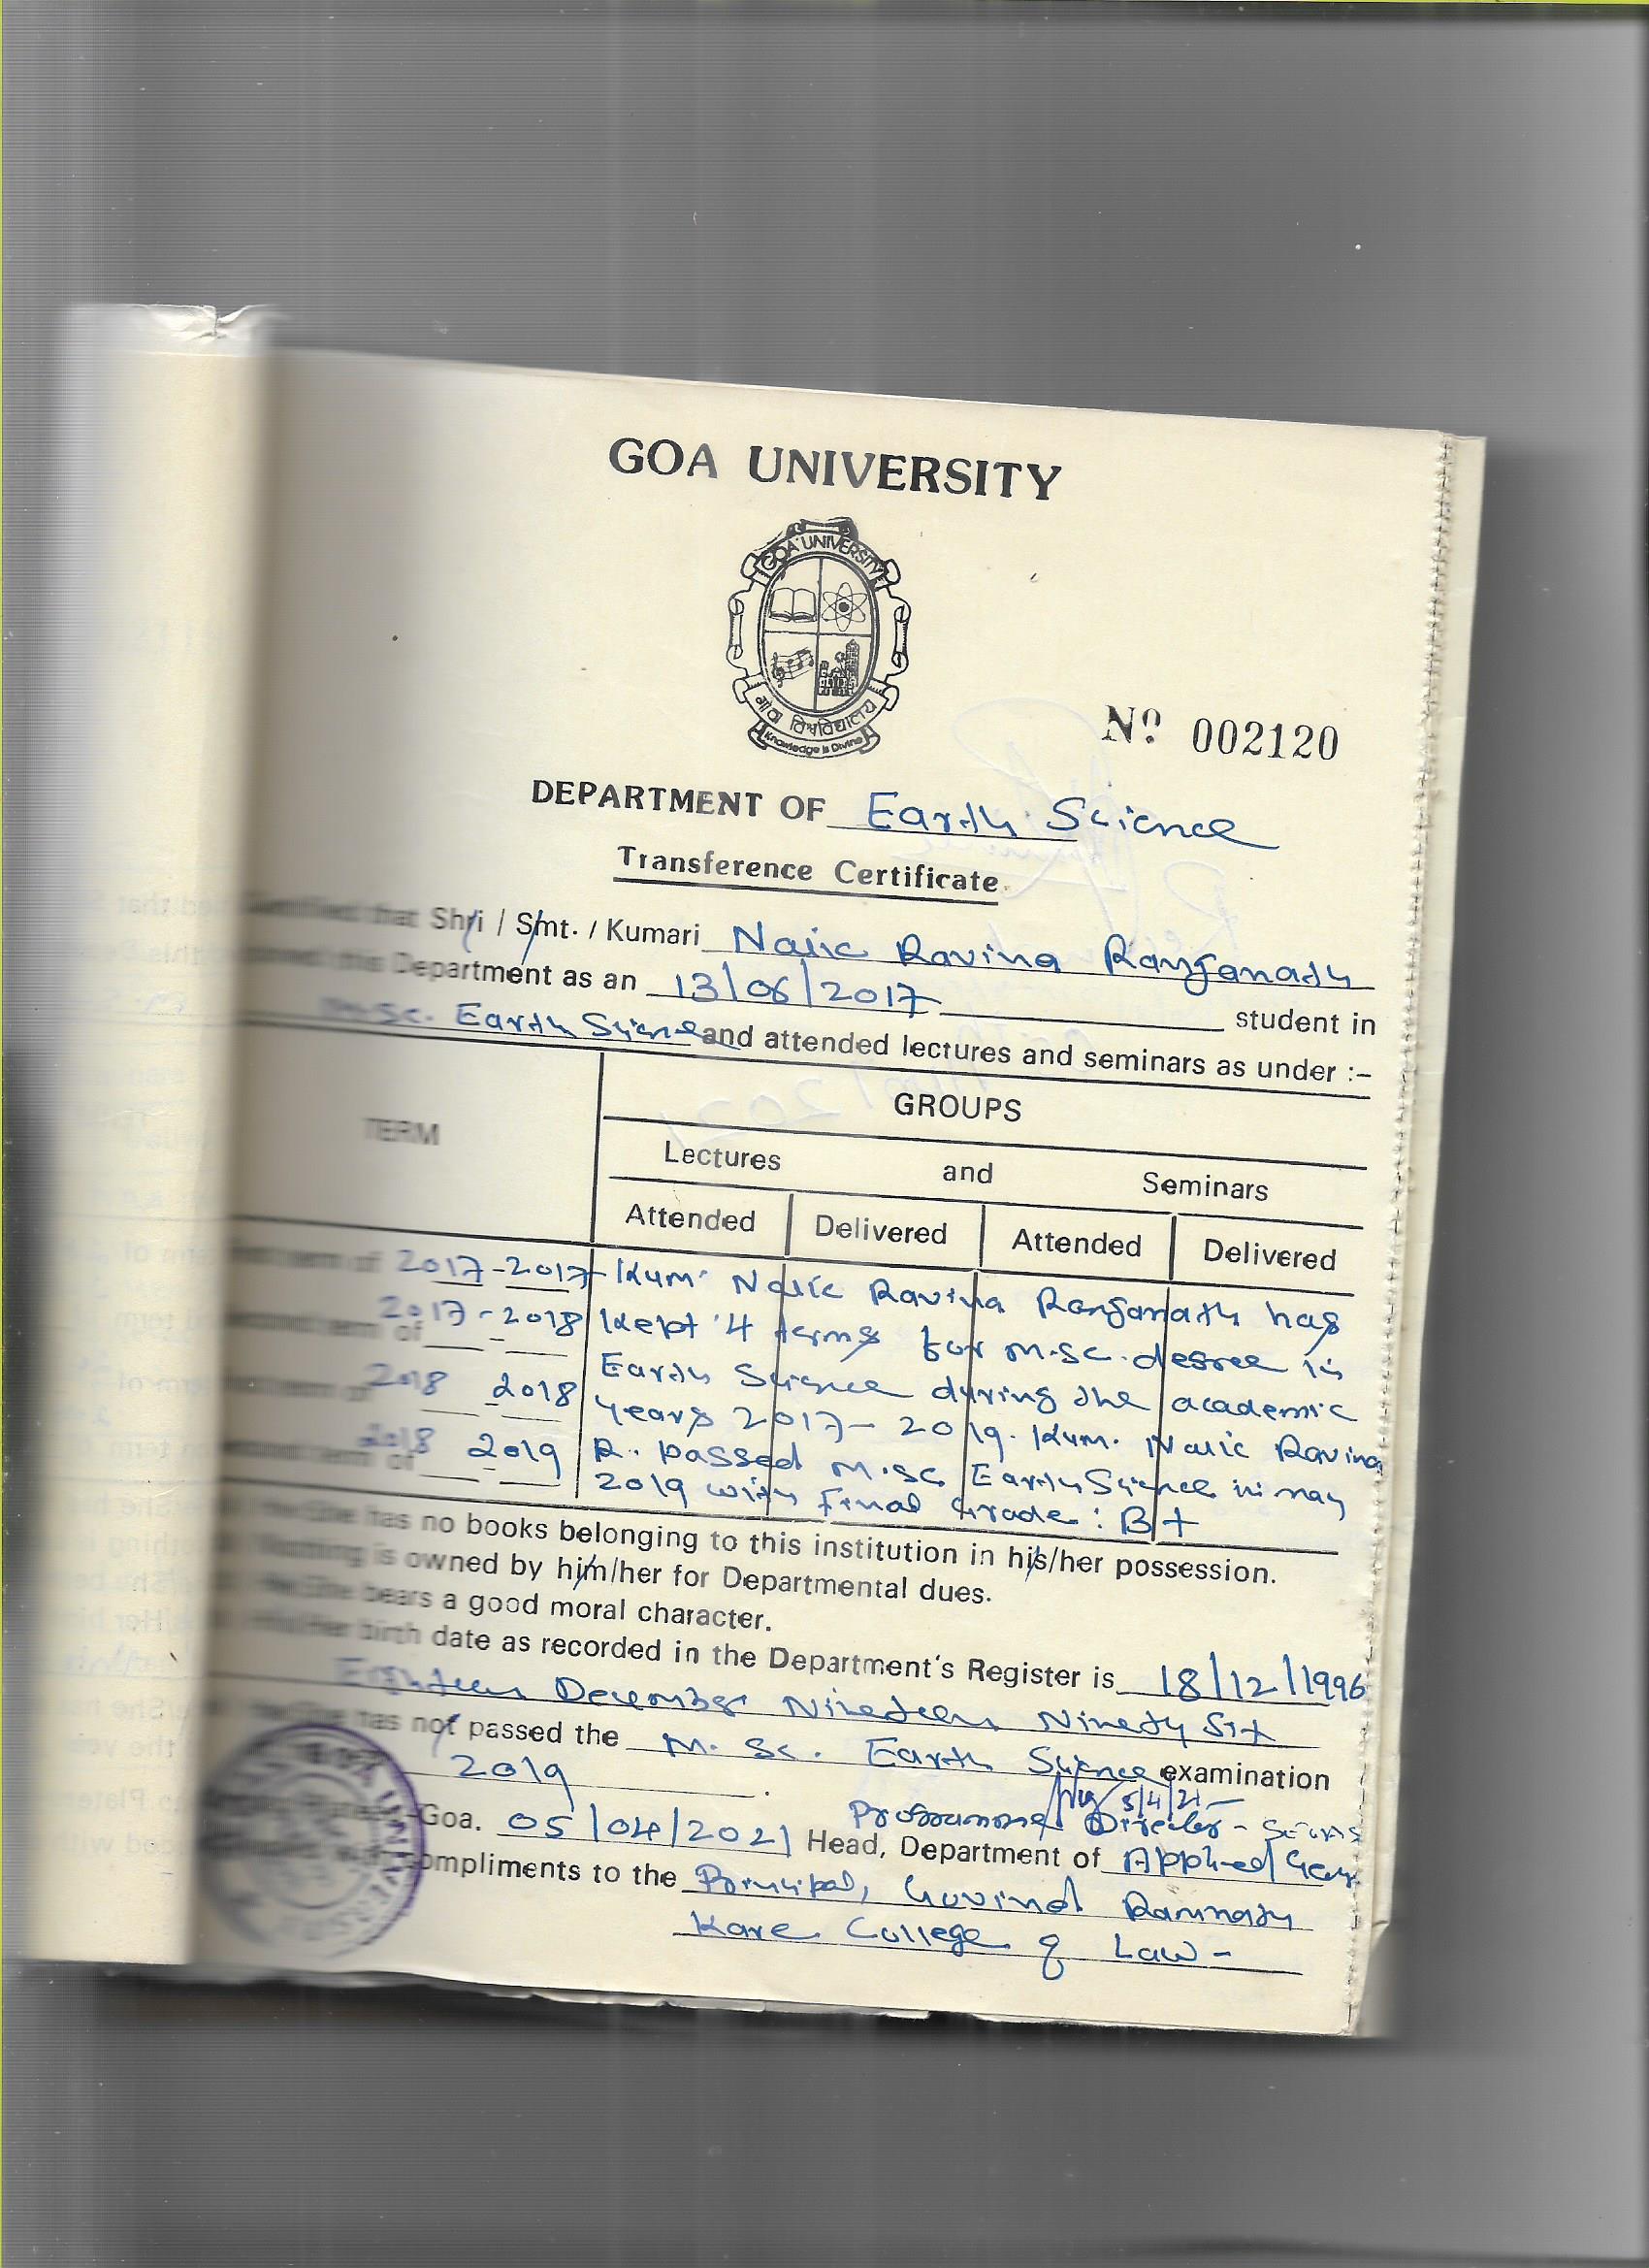 GOA UNIVERSITY
GOA UNIVERSITY
गोवा विश्वविद्यालय
Knowledge is Divine
Nº 002120
DEPARTMENT OF Earth Science
Transference Certificate
Certified that Shri / Smt. / Kumari Naik Ravina Ranganath
this Department as an 13/06/2017 student in
M.Sc. Earth Science and attended lectures and seminars as under :-
TERM
GROUPS
Lectures and Seminars
Attended Delivered Attended Delivered
term of 2017-2017 Kum. Naik Ravina Ranganath has
second term of 2017-2018 kept 4 terms for M.Sc. degree in
term of 2018 - 2018 Earth Science during the academic
second term of 2018 - 2019 years 2017-2019. Kum. Naik Ravina
R. passed M.Sc. Earth Science in may
2019 with Final Grade: B+
has no books belonging to this institution in his/her possession.
Nothing is owned by him/her for Departmental dues.
bears a good moral character.
birth date as recorded in the Department's Register is 18/12/1996
Eighteen December Nineteen Ninety Six
has not passed the M. Sc. Earth Science examination
2019
5/4/21
Programme Director -
Goa. 05/04/2021 Head, Department of Applied Geo.
compliments to the Principal, Govind Ramnath
Kare College of Law -